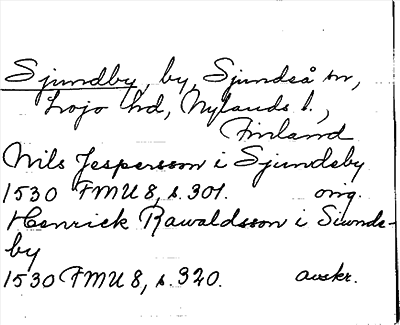 Sjundby, by, Sjundeå sn,
Lojo hd, Nylands l.,
Finland
Nils Jespersson i Sjundeby
1530 FMU 8, s. 301. orig.
Henrick Rawaldsson i Siunde-
by
1530 FMU 8, s. 320. avskr.